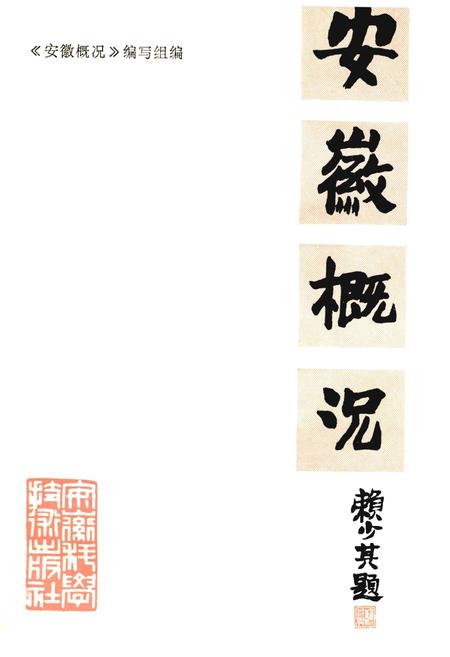 《安徽概况》编写组编
安徽概况
赖少其题
安徽科學
技术出版社